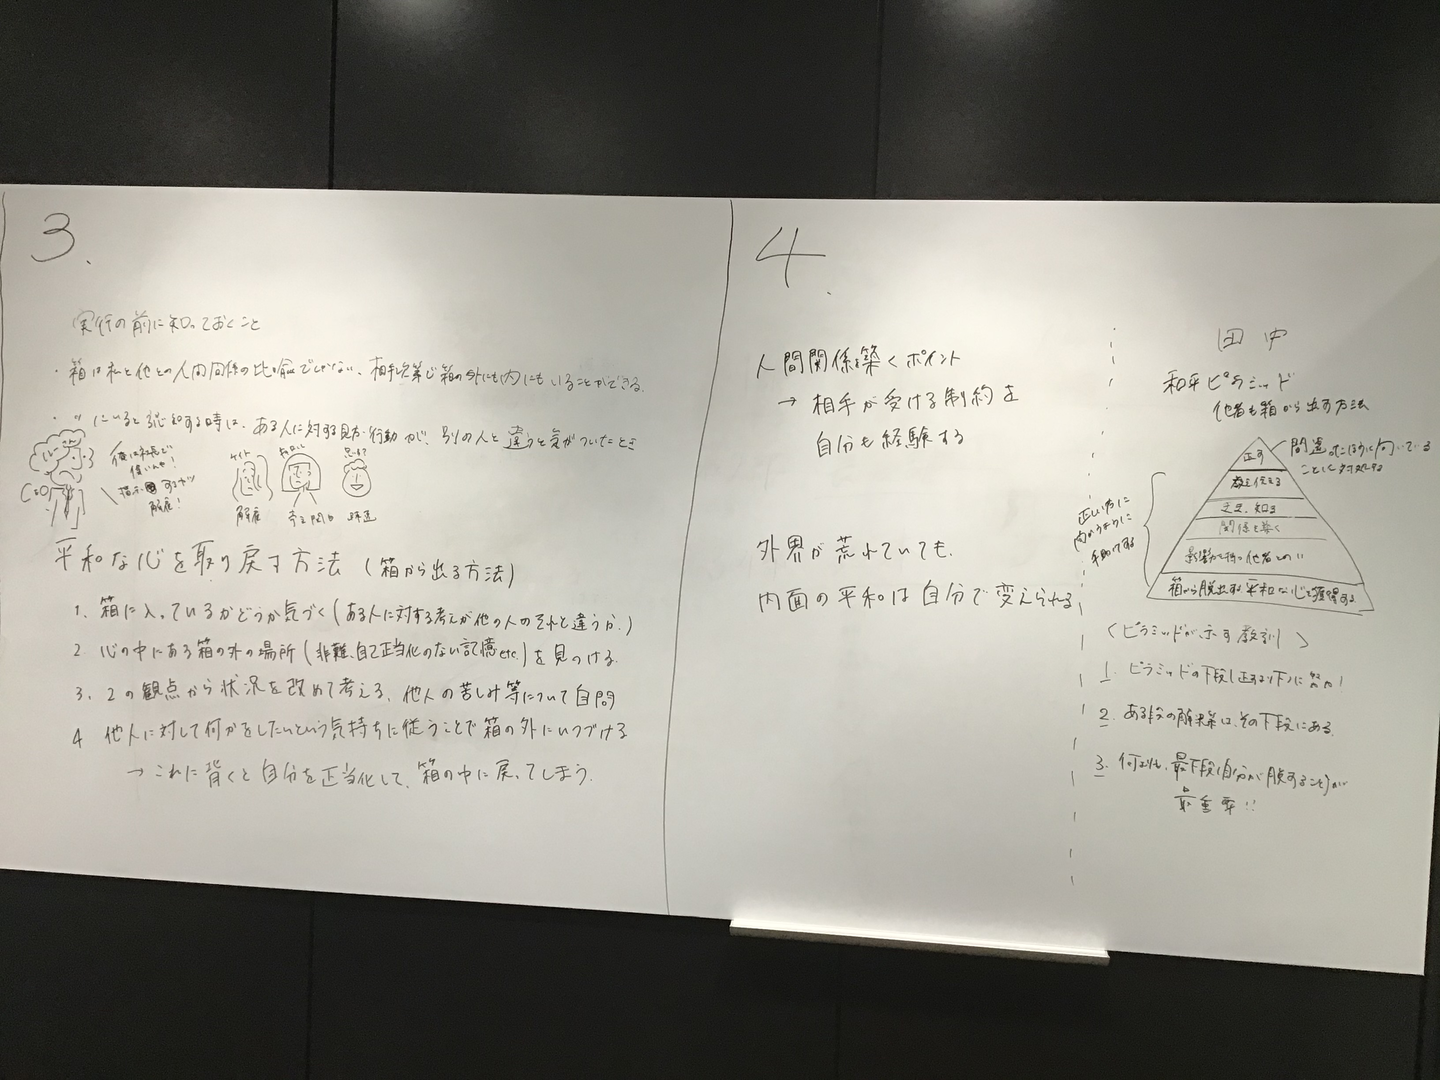 3.
実行の前に知っておくこと
・箱は私と他との人間関係の比喩でしかない、相手次第で箱の外にも内にもいることができる。
・〃にいると認知する時は、ある人に対する見方・行動が、別の人と違うと気がついたとき
俺は社長で
偉いんや!
指示 するヤツ
解雇!
CEO
ケイト
解雇
平和な心を取り戻す方法(箱から出る方法)
1. 箱に入っているかどうか気づく(ある人に対する考えが他の人のそれと違うか.)
2 心の中にある箱の外の場所(非難、自己正当化のない記憶etc.)を見つける.
3. 2の観点から状況を改めて考える、他人の苦しみ等について自問
4 他人に対して何かをしたいという気持ちに従うことで箱の外にいつづける
→これに背くと自分を正当化して、箱の中に戻ってしまう.
4.
人間関係を築くポイント
→相手が受ける制約を
自分も経験する
外界が荒れていても、
内面の平和は自分で変えられる
田中
和平ピラミッド
他者も箱から出す方法
正す
間違ったほうに向いている
ことに対処する
教え伝える
知る
関係を築く
箱から脱出する 平和な心を獲得する
正しい方に
向かうように
手助けする
〈ピラミッドが示す教訓〉
1. ピラミッドの下段
2. ある段の解決策は、その下段にある.
3. 何よりも、最下段(自分が脱すること)が
最重要!!